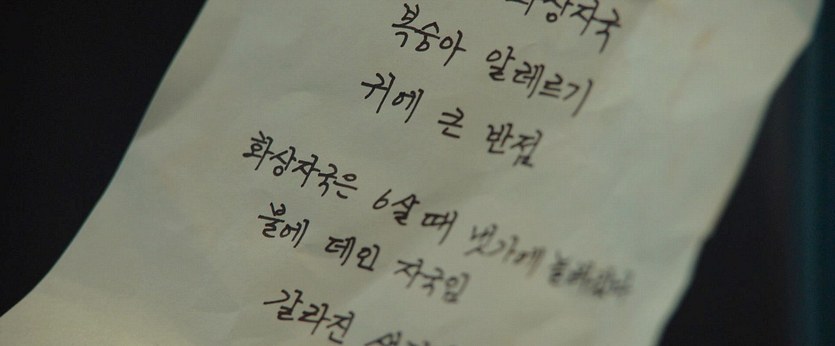 화상자국
복숭아 알레르기
귀에 큰 반점
화상자국은 6살 때 냇가에 놀러갔다
불에 데인 자국임
갈라진